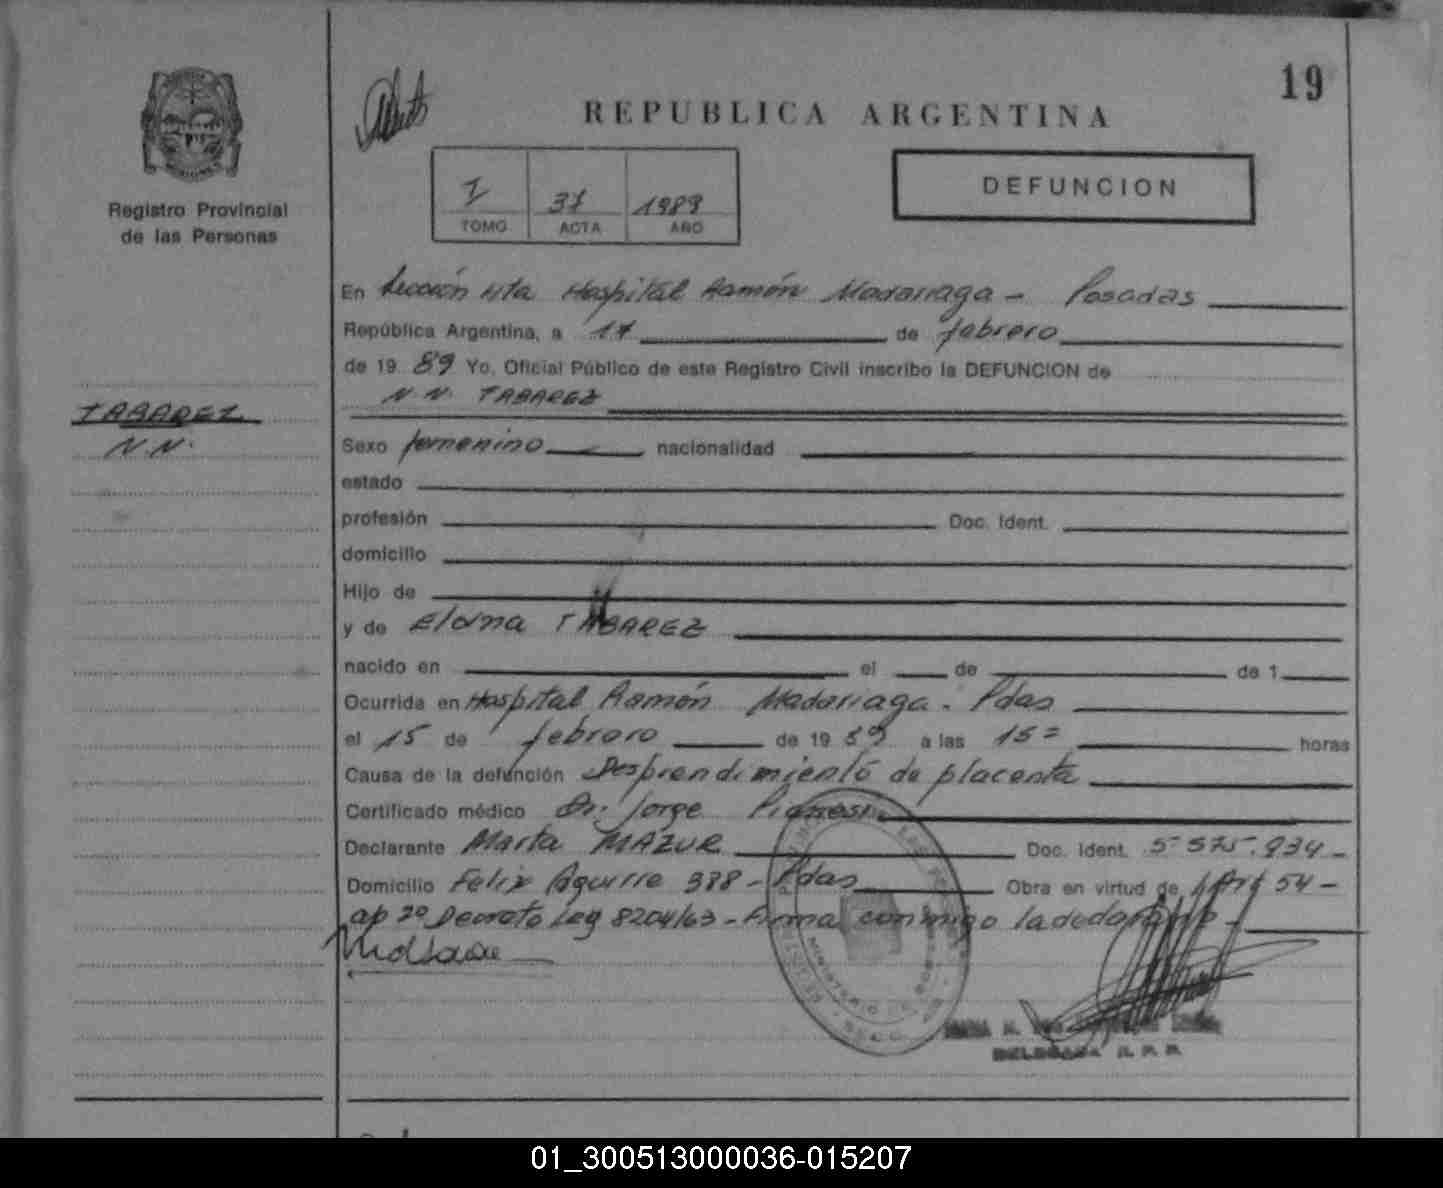 19
REPUBLICA ARGENTINA
DEFUNCION
I 37 1989
TOMO ACTA AÑO
Registro Provincial
de las Personas
En Sección 4ta Hospital Ramón Madariaga - Posadas
República Argentina, a 17 de febrero
de 1989 Yo, Oficial Público de este Registro Civil inscribo la DEFUNCION de
N.N. TABAREZ
TABAREZ
N.N.
Sexo femenino nacionalidad
estado
profesión Doc. Ident.
domicilio
Hijo de
y de Eldina TABAREZ
nacido en el de de 1
Ocurrida en Hospital Ramón Madariaga - Pdas
el 15 de febrero de 1989 a las 15= horas
Causa de la defunción Desprendimiento de placenta
Certificado médico Dr. Jorge
Declarante Marta MAZUR Doc. Ident. 5.575.934-
Domicilio Felix Aguirre 388 - Pdas Obra en virtud de Art 54 -
ap 2º Decreto Ley 8204/63 - Firma conmigo la declarante -
MINISTERIO DE
DELEGADA R. P. P.
01_300513000036-015207